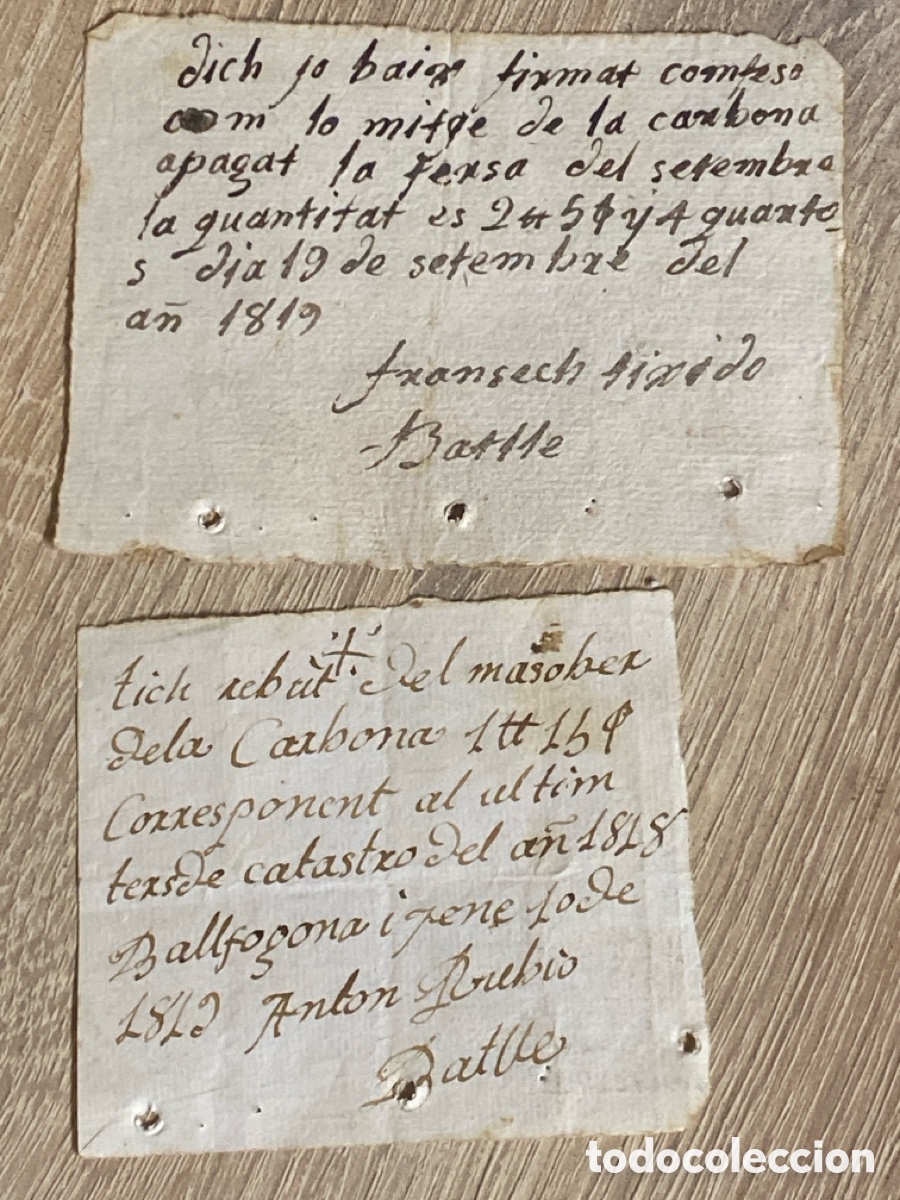 dich jo baix firmat comfeso
com lo mitge de la carbona
apagat la tersa del setembre
la quantitat es 2 tt 5 ꝭ y 4 quarto-
s dia 19 de setembre del
añ 1819
fransech tixido
Batlle
tich rebut del masober
dela Carbona 1 tt 15 ꝭ
Corresponent al ultim
ters de catastro del añ 1818
Ballfogona i 10 de
1819 Anton Rubio
Batlle
todocoleccion